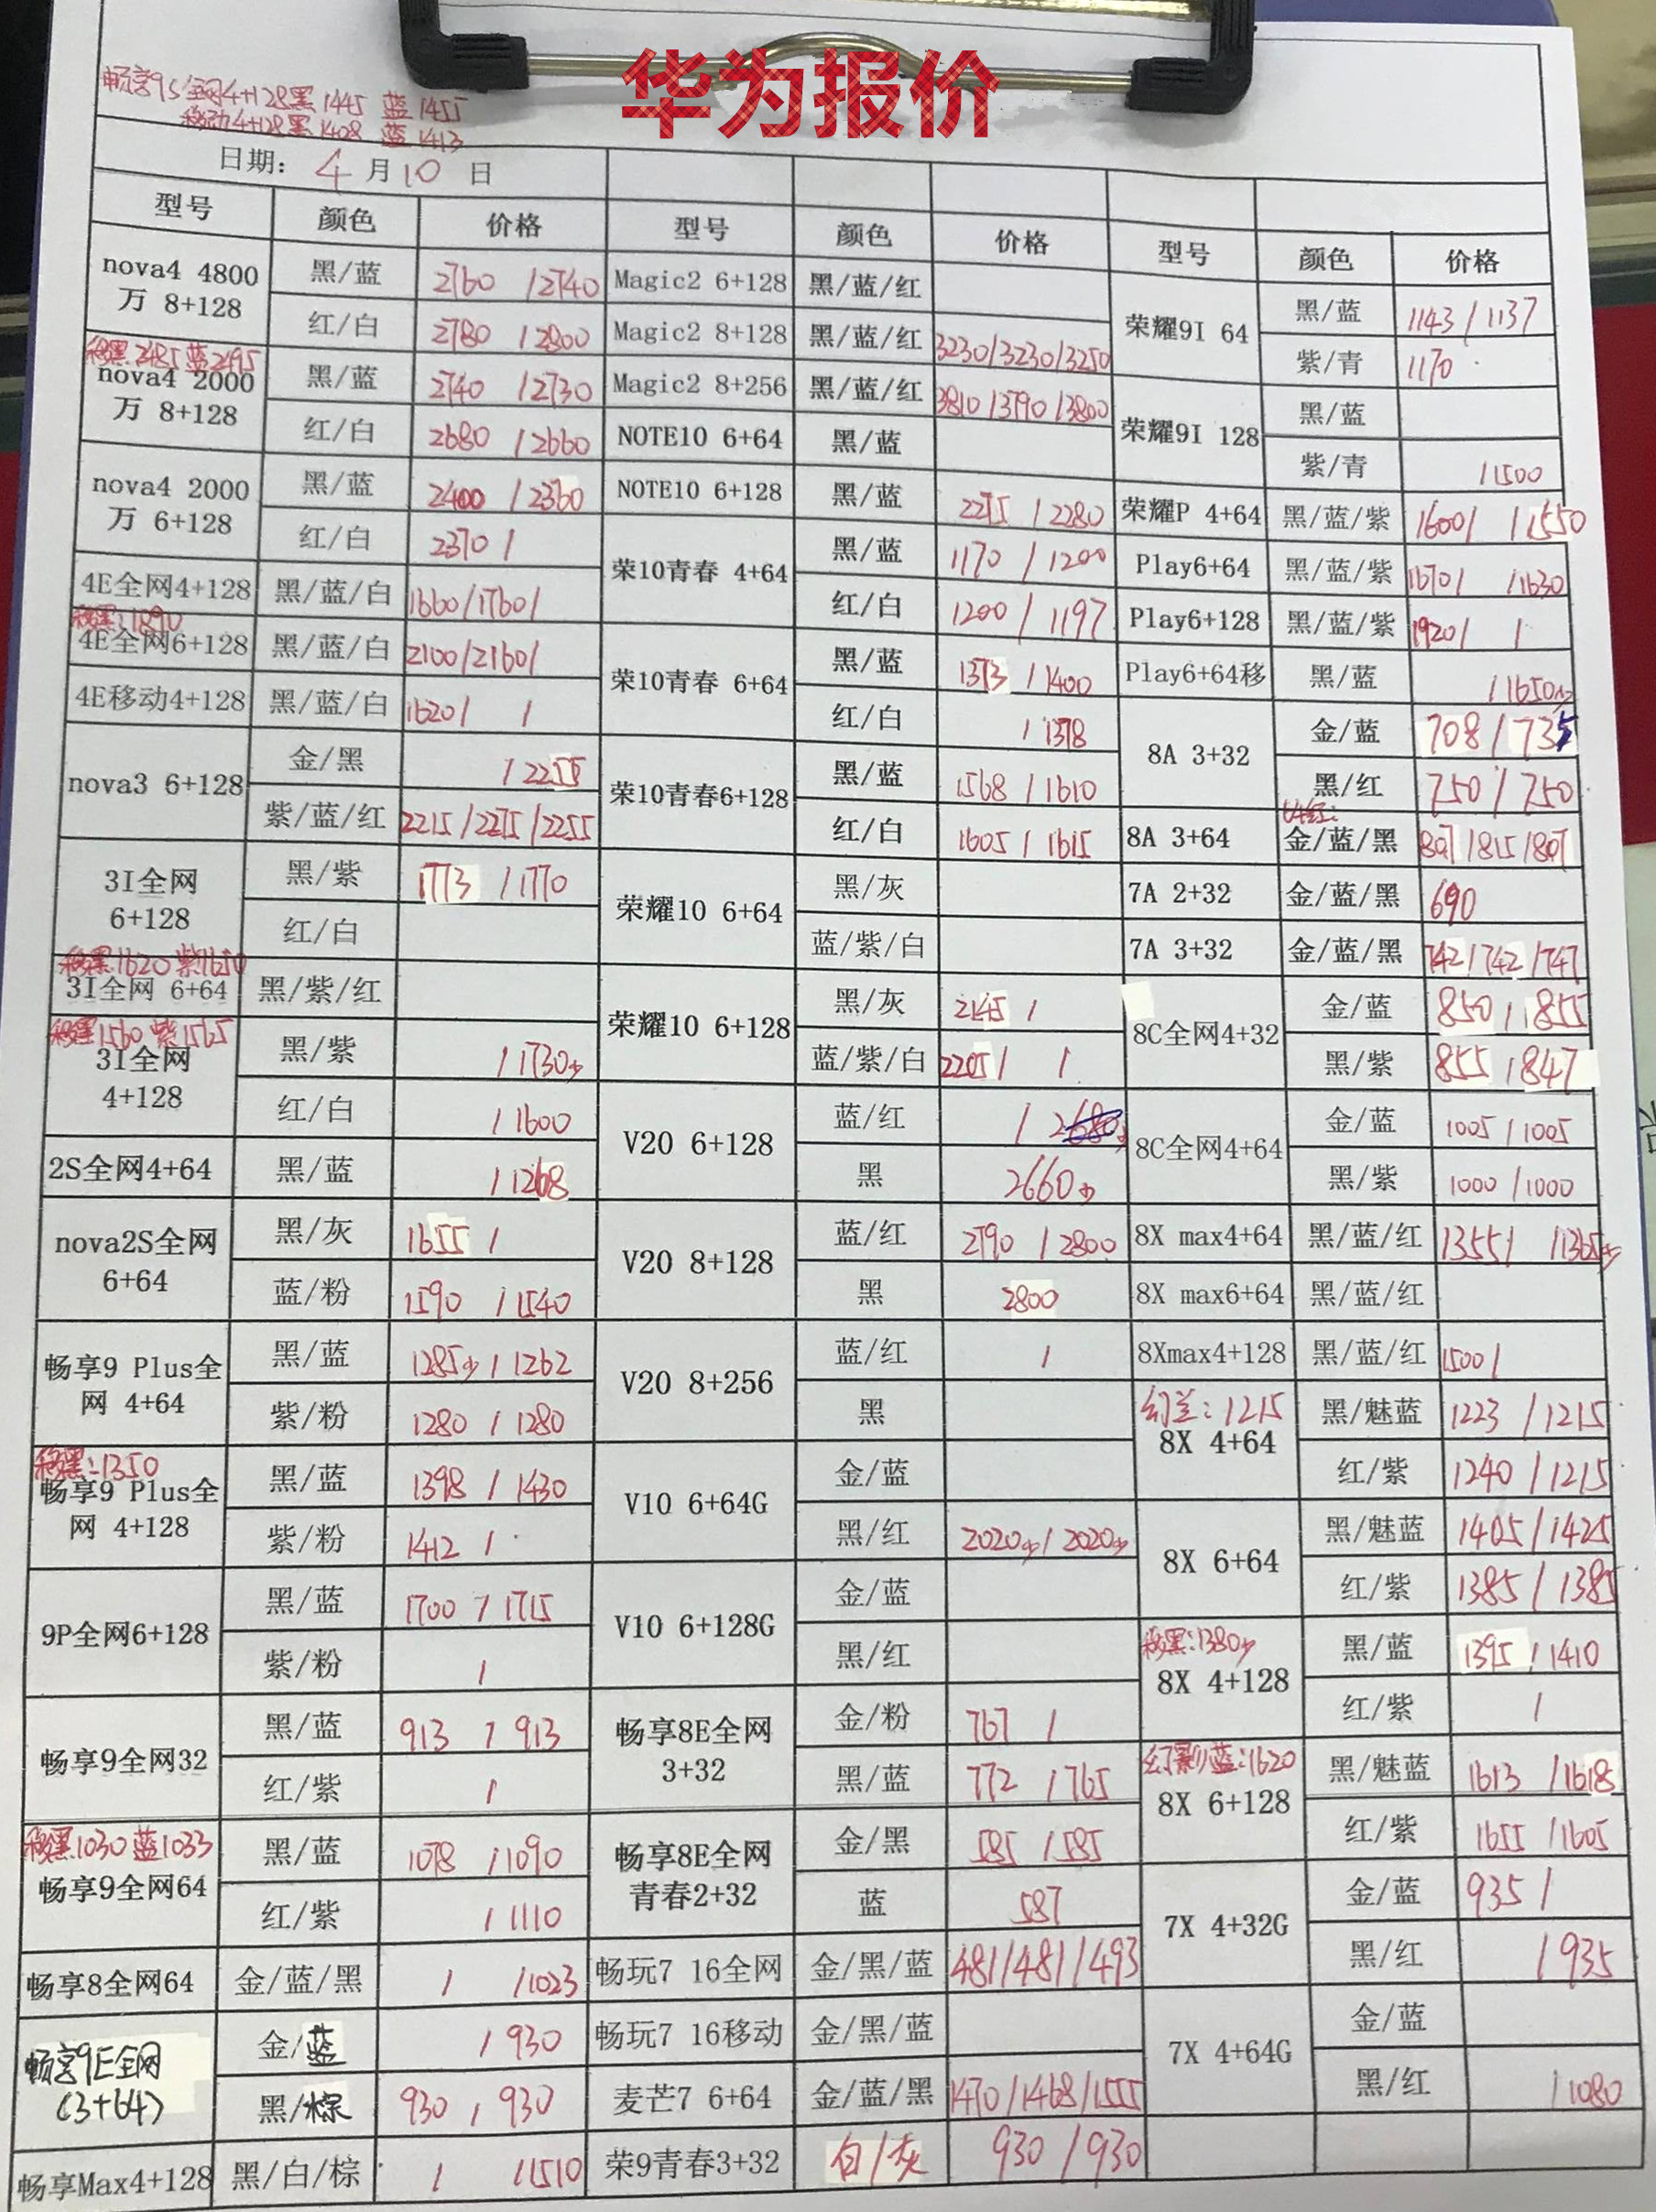 华为报价
畅享9S全网4+128黑1445 蓝1455
移动4+128黑1408 蓝1413
日期: 4月10日
型号 颜色 价格 型号 颜色 价格 型号 颜色 价格
nova4 4800万 8+128 黑/蓝 2760 /2740
红/白 2780 /2800
移黑:2485 蓝2495
nova4 2000万 8+128 黑/蓝 2740 /2730
红/白 2680 /2660
nova4 2000万 6+128 黑/蓝 2400 /2360
红/白 2370 /
4E全网4+128 黑/蓝/白 1660/1760/
移黑:1890
4E全网6+128 黑/蓝/白 2100/2160/
4E移动4+128 黑/蓝/白 1620/ /
nova3 6+128 金/黑 /2255
紫/蓝/红 2215/2275/2255
3I全网 6+128 黑/紫 1773 /1770
红/白
移黑1620 紫1650
3I全网 6+64 黑/紫/红
移黑1560 紫1565
3I全网 4+128 黑/紫 /1730少
红/白 /1600
2S全网4+64 黑/蓝 /1268
nova2S全网 6+64 黑/灰 1655 /
蓝/粉 1590 /1540
畅享9 Plus全网 4+64 黑/蓝 1285少/1262
紫/粉 1280 /1280
移黑:1350
畅享9 Plus全网 4+128 黑/蓝 1398 /1430
紫/粉 1412 /
9P全网6+128 黑/蓝 1700 /1715
紫/粉 /
畅享9全网32 黑/蓝 913 /913
红/紫 /
移黑1030 蓝1033
畅享9全网64 黑/蓝 1078 /1090
红/紫 /1110
畅享8全网64 金/蓝/黑 / /1023
畅享9E全网(3+64) 金/蓝 /930
黑/棕 930 /930
畅享Max4+128 黑/白/棕 / /1510
Magic2 6+128 黑/蓝/红
Magic2 8+128 黑/蓝/红 3230/3230/3250
Magic2 8+256 黑/蓝/红 3810/3790/3800
NOTE10 6+64 黑/蓝
NOTE10 6+128 黑/蓝 2275 /2280
荣10青春 4+64 黑/蓝 1170 /1200
红/白 1200 /1197
荣10青春 6+64 黑/蓝 1373 /1400
红/白 /1378
荣10青春6+128 黑/蓝 1568 /1610
红/白 1605 /1615
荣耀10 6+64 黑/灰
蓝/紫/白
荣耀10 6+128 黑/灰 2145 /
蓝/紫/白 2205/ /
V20 6+128 蓝/红 /2680少
黑 2660少
V20 8+128 蓝/红 2790 /2800
黑 2800
V20 8+256 蓝/红 /
黑
V10 6+64G 金/蓝
黑/红 2020少/2020少
V10 6+128G 金/蓝
黑/红
畅享8E全网 3+32 金/粉 767 /
黑/蓝 772 /765
畅享8E全网青春2+32 金/黑 585 /585
蓝 587
畅玩7 16全网 金/黑/蓝 481/481/493
畅玩7 16移动 金/黑/蓝
麦芒7 6+64 金/蓝/黑 1470/1468/1555
荣9青春3+32 白/灰 930 /930
荣耀9I 64 黑/蓝 1143/1137
紫/青 1170
荣耀9I 128 黑/蓝
紫/青 /1500
荣耀P 4+64 黑/蓝/紫 1600/ /1550
Play6+64 黑/蓝/紫 1670/ /1630
Play6+128 黑/蓝/紫 1920/ /
Play6+64移 黑/蓝 /1650少
8A 3+32 金/蓝 708/735
黑/红 750/750
8A 3+64 金/蓝/黑 807/815/807
7A 2+32 金/蓝/黑 690
7A 3+32 金/蓝/黑 742/742/747
8C全网4+32 金/蓝 850/855
黑/紫 855/847
8C全网4+64 金/蓝 1005/1005
黑/紫 1000/1000
8X max4+64 黑/蓝/红 1355/ /1365少
8X max6+64 黑/蓝/红
8Xmax4+128 黑/蓝/红 1500/
幻兰:1215
8X 4+64 黑/魅蓝 1223 /1215
红/紫 1240 /1215
8X 6+64 黑/魅蓝 1405/1425
红/紫 1385/1385
移黑:1380少
8X 4+128 黑/蓝 1395 /1410
红/紫 /
幻影蓝:1620
8X 6+128 黑/魅蓝 1613 /1618
红/紫 1655 /1605
7X 4+32G 金/蓝 935/
黑/红 /935
7X 4+64G 金/蓝
黑/红 /1080